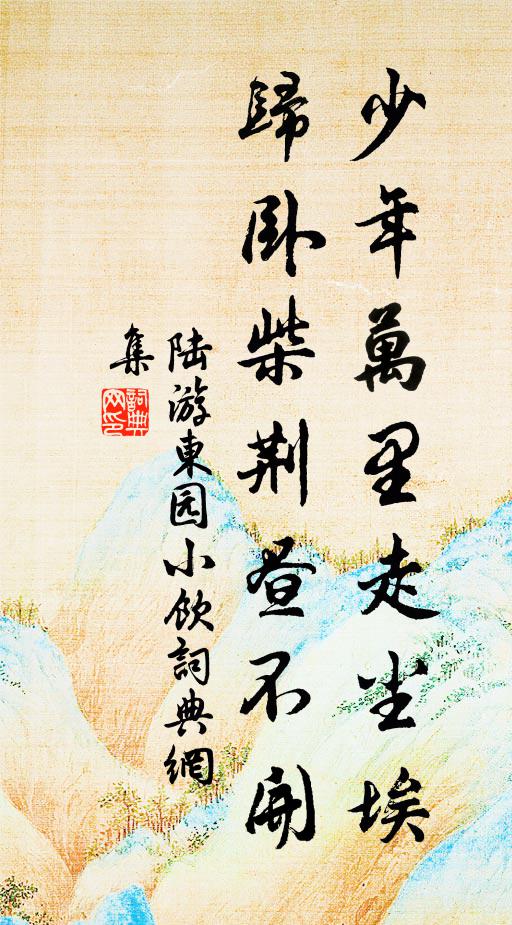 少年萬里走尘埃
歸卧柴荆昼不開
陆游東园小飲詞典網
集
詞典网印